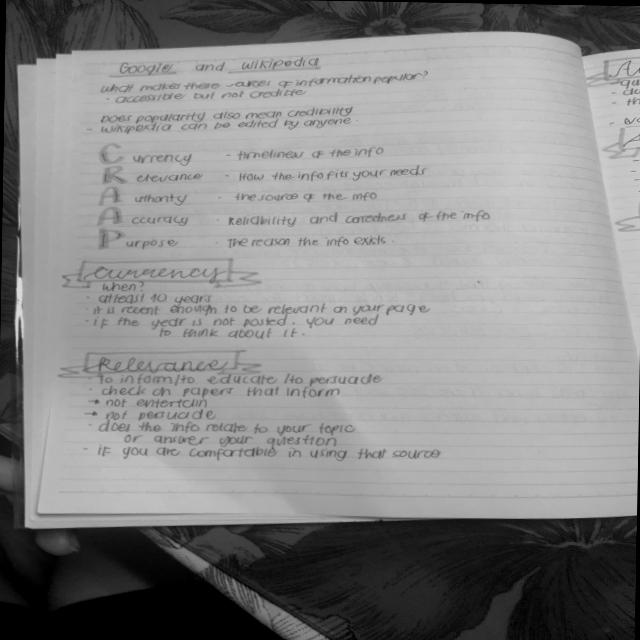 Google and Wikipedia
What makes these sources of information popular?
· accessible but not credible
Does popularity also mean credibility
- Wikipedia can be edited by anyone.
Currency - timeliness of the info
Relevance - How the info fits your needs
Authority - the source of the info
Accuracy - Reliability and correctness of the info
Purpose - The reason the info exists.
Currency
· When?
· atleast 10 years
· it is recent enough to be relevant on your page
· if the year is not posted, you need
to think about it.
Relevance
· To inform/to educate/to persuade
· check on papers that inform
→ not entertain
→ not persuade
· does the info relate to your topic
or answer your question
· if you are comfortable in using that source